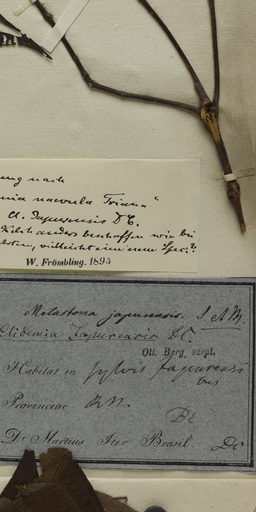 ung nach
nia nervula Triana"
Cl. Japurensis DC.
Kelch anders beschaffen wie bei
vielleicht eine neue Spec.?
W. Frömbling. 1895
Melastoma japurensis. S et M.
Clidemia Japurensis DC.
Ott. Berg. script.
Habitat in sylvis Japurensi
bus
Provinciae R. N.
DC
Dr. Martius Iter Brasil. DC